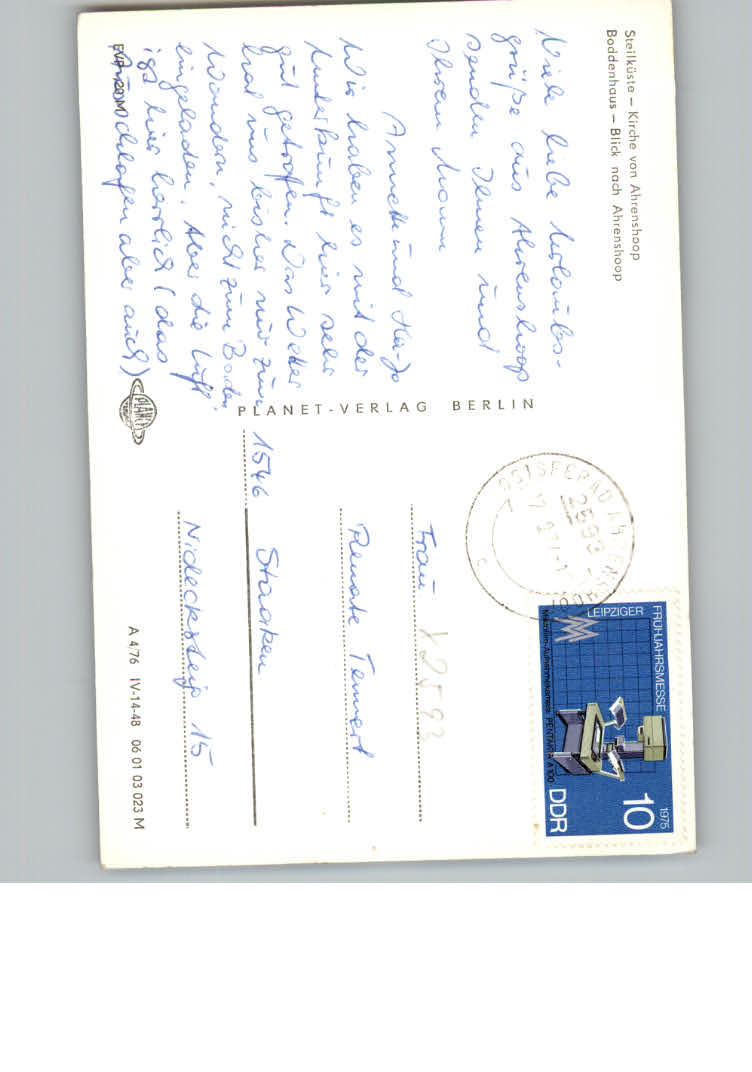 Steilküste – Kirche von Ahrenshoop
Boddenhaus – Blick nach Ahrenshoop
Viele liebe Urlaubs-
grüße aus Ahrenshoop
senden Ihnen und
Ihrem Mann
Annett und Ha-Jo
Wir haben es mit der
Unterkunft hier sehr
gut getroffen. Das Wetter
hat uns bisher nur zum
Wandern, nicht zum Baden
eingeladen. Aber die Luft
ist hier herrlich (das
Ausschlafen aber auch)
EVP 0,20 M
PLANET-VERLAG BERLIN
PLANET
OSTSEEBAD AHRENSHOOP
2593
c
FRÜHJAHRSMESSE 1975
LEIPZIGER
MM
PENTAKTA A 100
10
DDR
Frau
X2593
Renate Tennert
1546 Staaken
Nidecksteig 15
A 4/76 IV-14-48 06 01 03 023 M